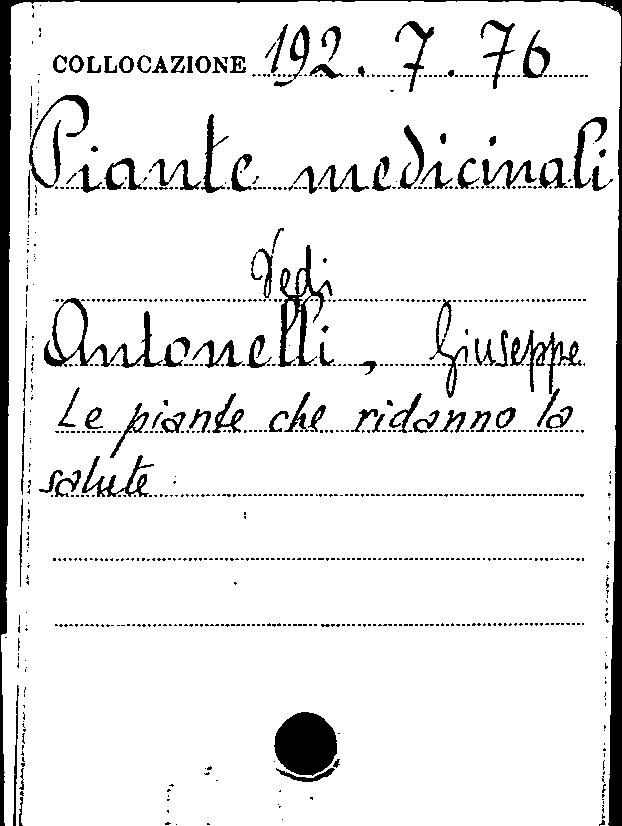 COLLOCAZIONE 192.7.76
Piante medicinali
Vedi
Antonelli, Giuseppe
Le piante che ridanno la
salute